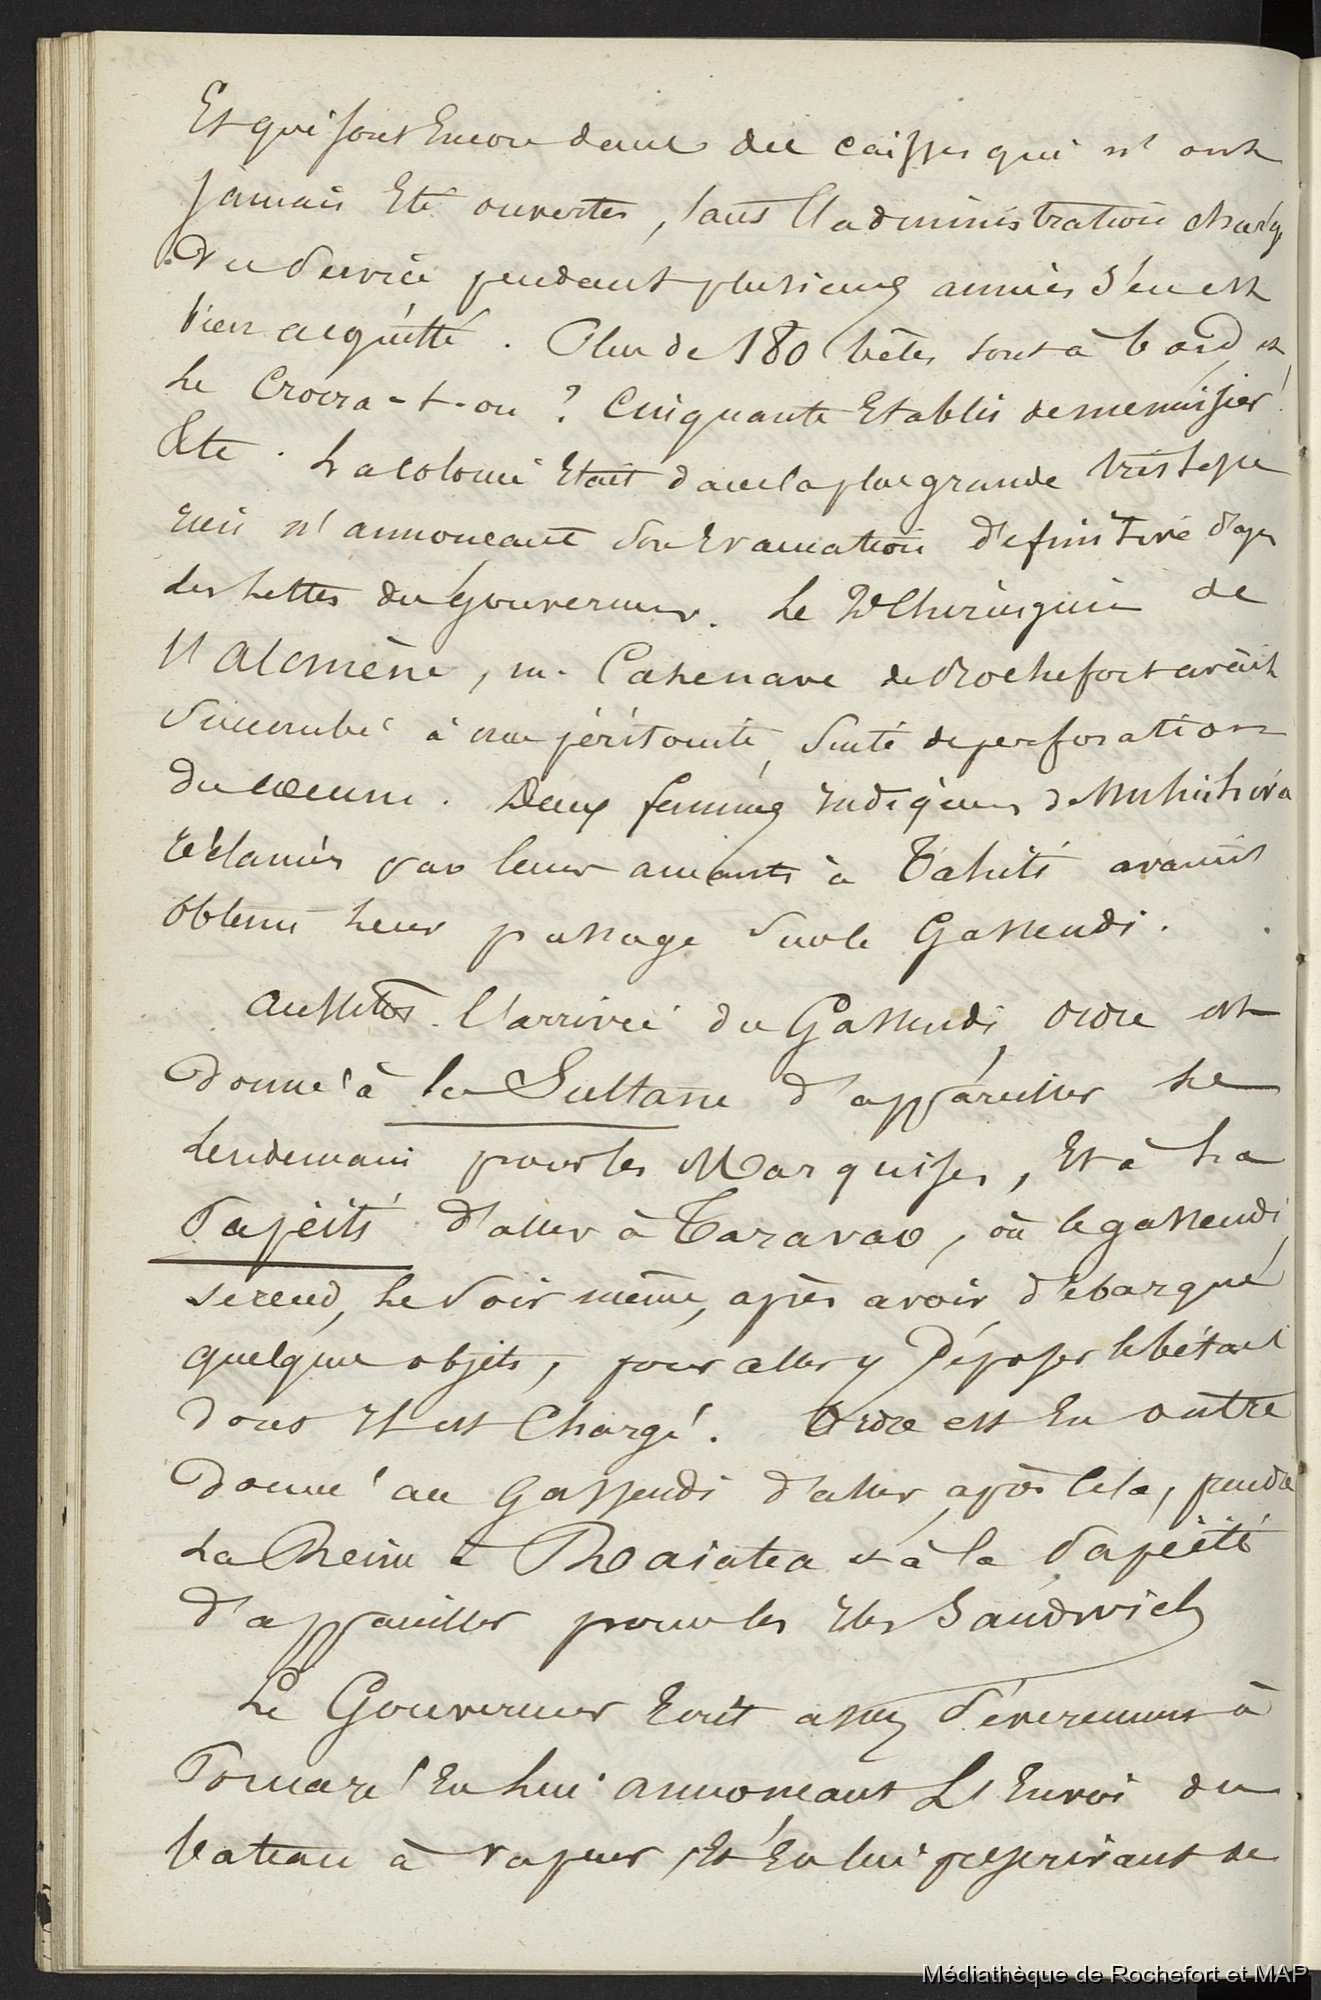 Et qui sont Encore dans des caisses qui n'ont
jamais Eté ouvertes, tant l'administration charg
du Service pendant plusieurs années s'en est
bien acquitté. Plus de 180 bêtes sont à bord et
le Croira-t-on ? Cinquante Etablis de menuisier.
Etc. La colonie Etait dans la plus grande tristesse
rien n'annonçant Son Evacuation définitive d'après
les Lettres du Gouverneur. Le 2e Chirurgien de
l'Alcmène, m. Casenave de Rochefort avait
Succombé à une péritonite, Suite de perforation
du cœcum. Deux femmes indigènes de Nuhuhiva
réclamées par leurs amants à Tahiti avaient
Obtenu leur passage Sur le Gassendi.
Aussitôt l'arrivée du Gassendi, Ordre est
donné à la Sultane d'appareiller le
Lendemain pour les Marquises, Et à La
Papéiti d'aller à Taravao, où le gassendi
Se rend, Le Soir même, après avoir débarqué
quelques objets, pour aller y Déposer le bétail
dont Il est Chargé. Ordre est En outre
donné au Gassendi d'aller, après cela, prendre
La Reine à Raiatea et à la Papéiti
d'appareiller pour les Iles Sandwich
Le Gouverneur Ecrit assez Sévèrement à
Pomaré En Lui annonçant L'Envoi du
bateau à vapeur, Et En lui prescrivant de
Médiathèque de Rochefort et MAP